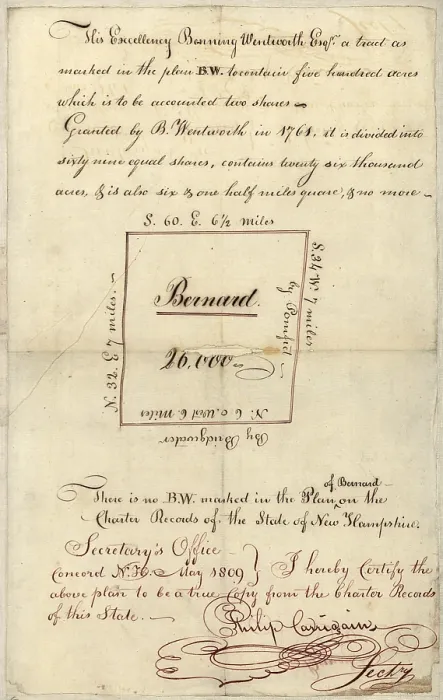 His Excellency Benning Wentworth Esqr. a tract as
marked in the plan B.W. to contain five hundred acres
which is to be accounted two shares
Granted by B. Wentworth in 1761. it is divided into
sixty nine equal shares, contains twenty six thousand
acres, & is also six & one half miles square, & no more
S. 60. E. 6½ miles
N. 32. E 7 miles.
Bernard.
26,000
S. 34 W. 7 miles.
by Pomfret
N. 60. West 6. Miles
By Bridgwater
of Bernard
There is no B.W. marked in the Plan ^ on the
Charter Records of the State of New Hampshire.
Secretary's Office
Concord N.H. May 1809 } I hereby Certify the
above plan to be a true Copy from the Charter Records
of this State.
Philip Carrigain
Secty